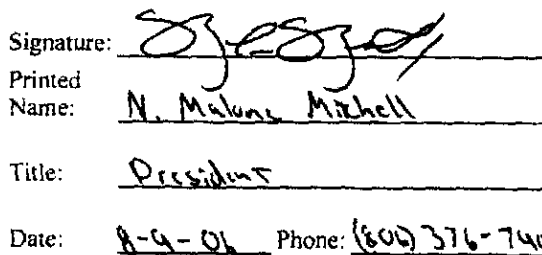 Signature:
Printed
Name: N. Malone Mitchell
Title: President
Date: 8-9-06 Phone: (806) 376-790